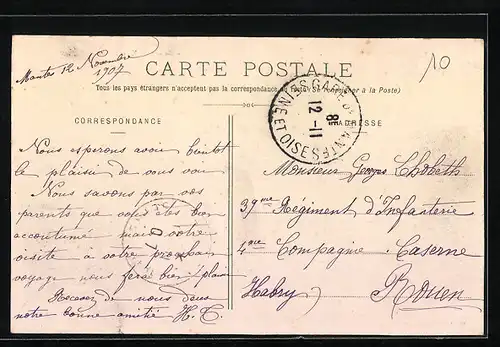 Mantes 12 Novembre
1907
10
CARTE POSTALE
Tous les pays étrangers n'acceptent pas la correspondance au recto (Se renseigner à la Poste)
CORRESPONDANCE
ADRESSE
GARE DE MANTES
8E
12-11
SEINE ET OISE
Nous esperons avoir bientot
le plaisir de vous voir
Nous savons par vos
parents que vous êtes bien
accoutumé mais votre
visite à votre prochain
voyage nous fera bien plaisir
Recevez de nous deux
notre bonne amitié H. T.
Monsieur Georges
39me Régiment d'Infanterie
4me Compagnie Caserne
Rouen